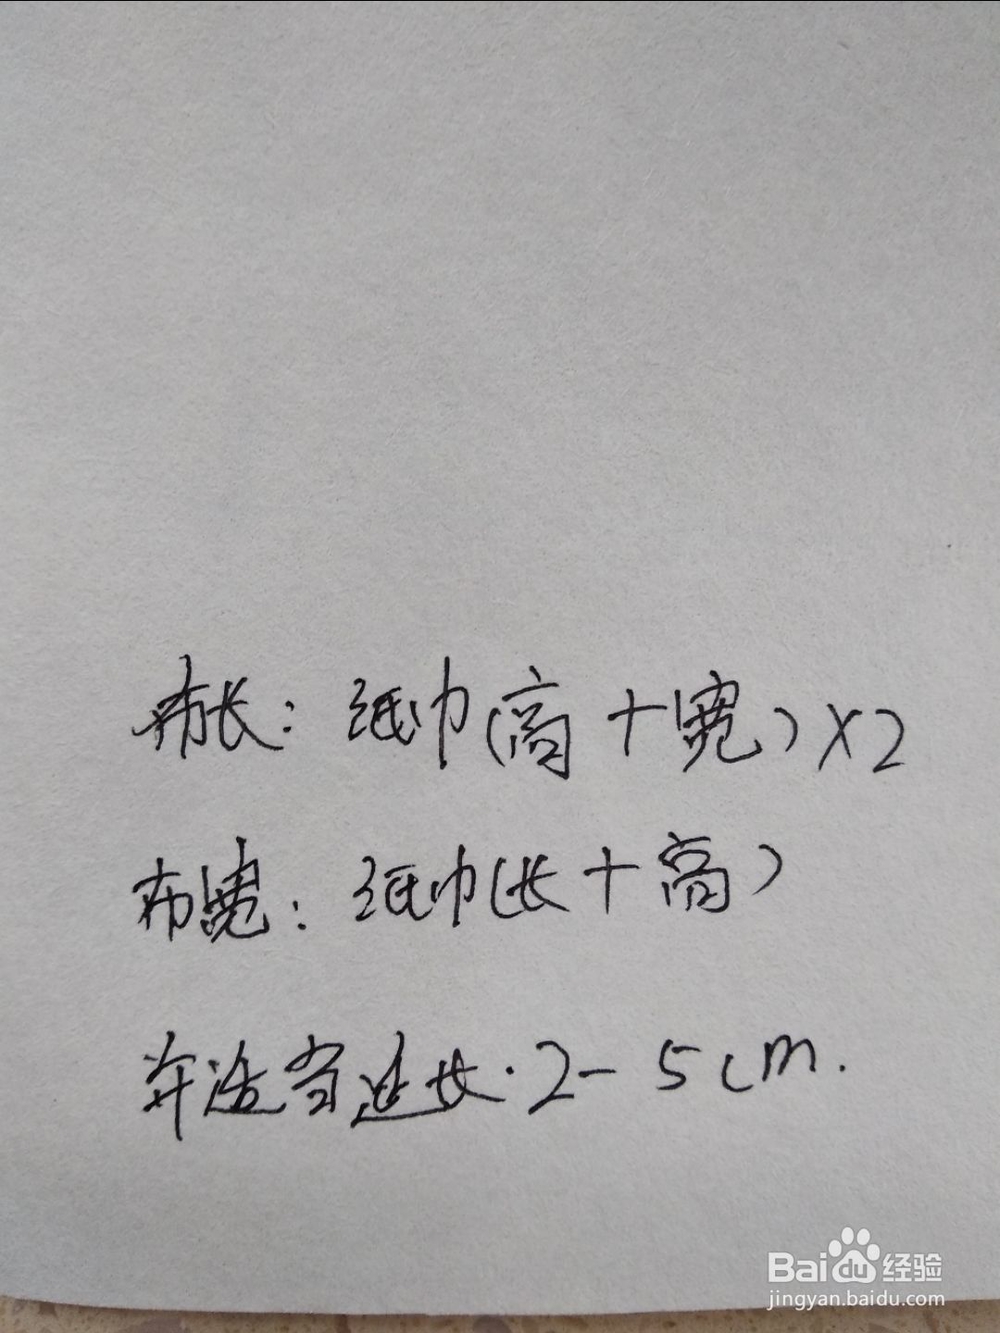 布长：纸巾(高+宽)×2
布宽：纸巾(长+高)
并适当延长.2-5cm.
Baidu经验
jingyan.baidu.com